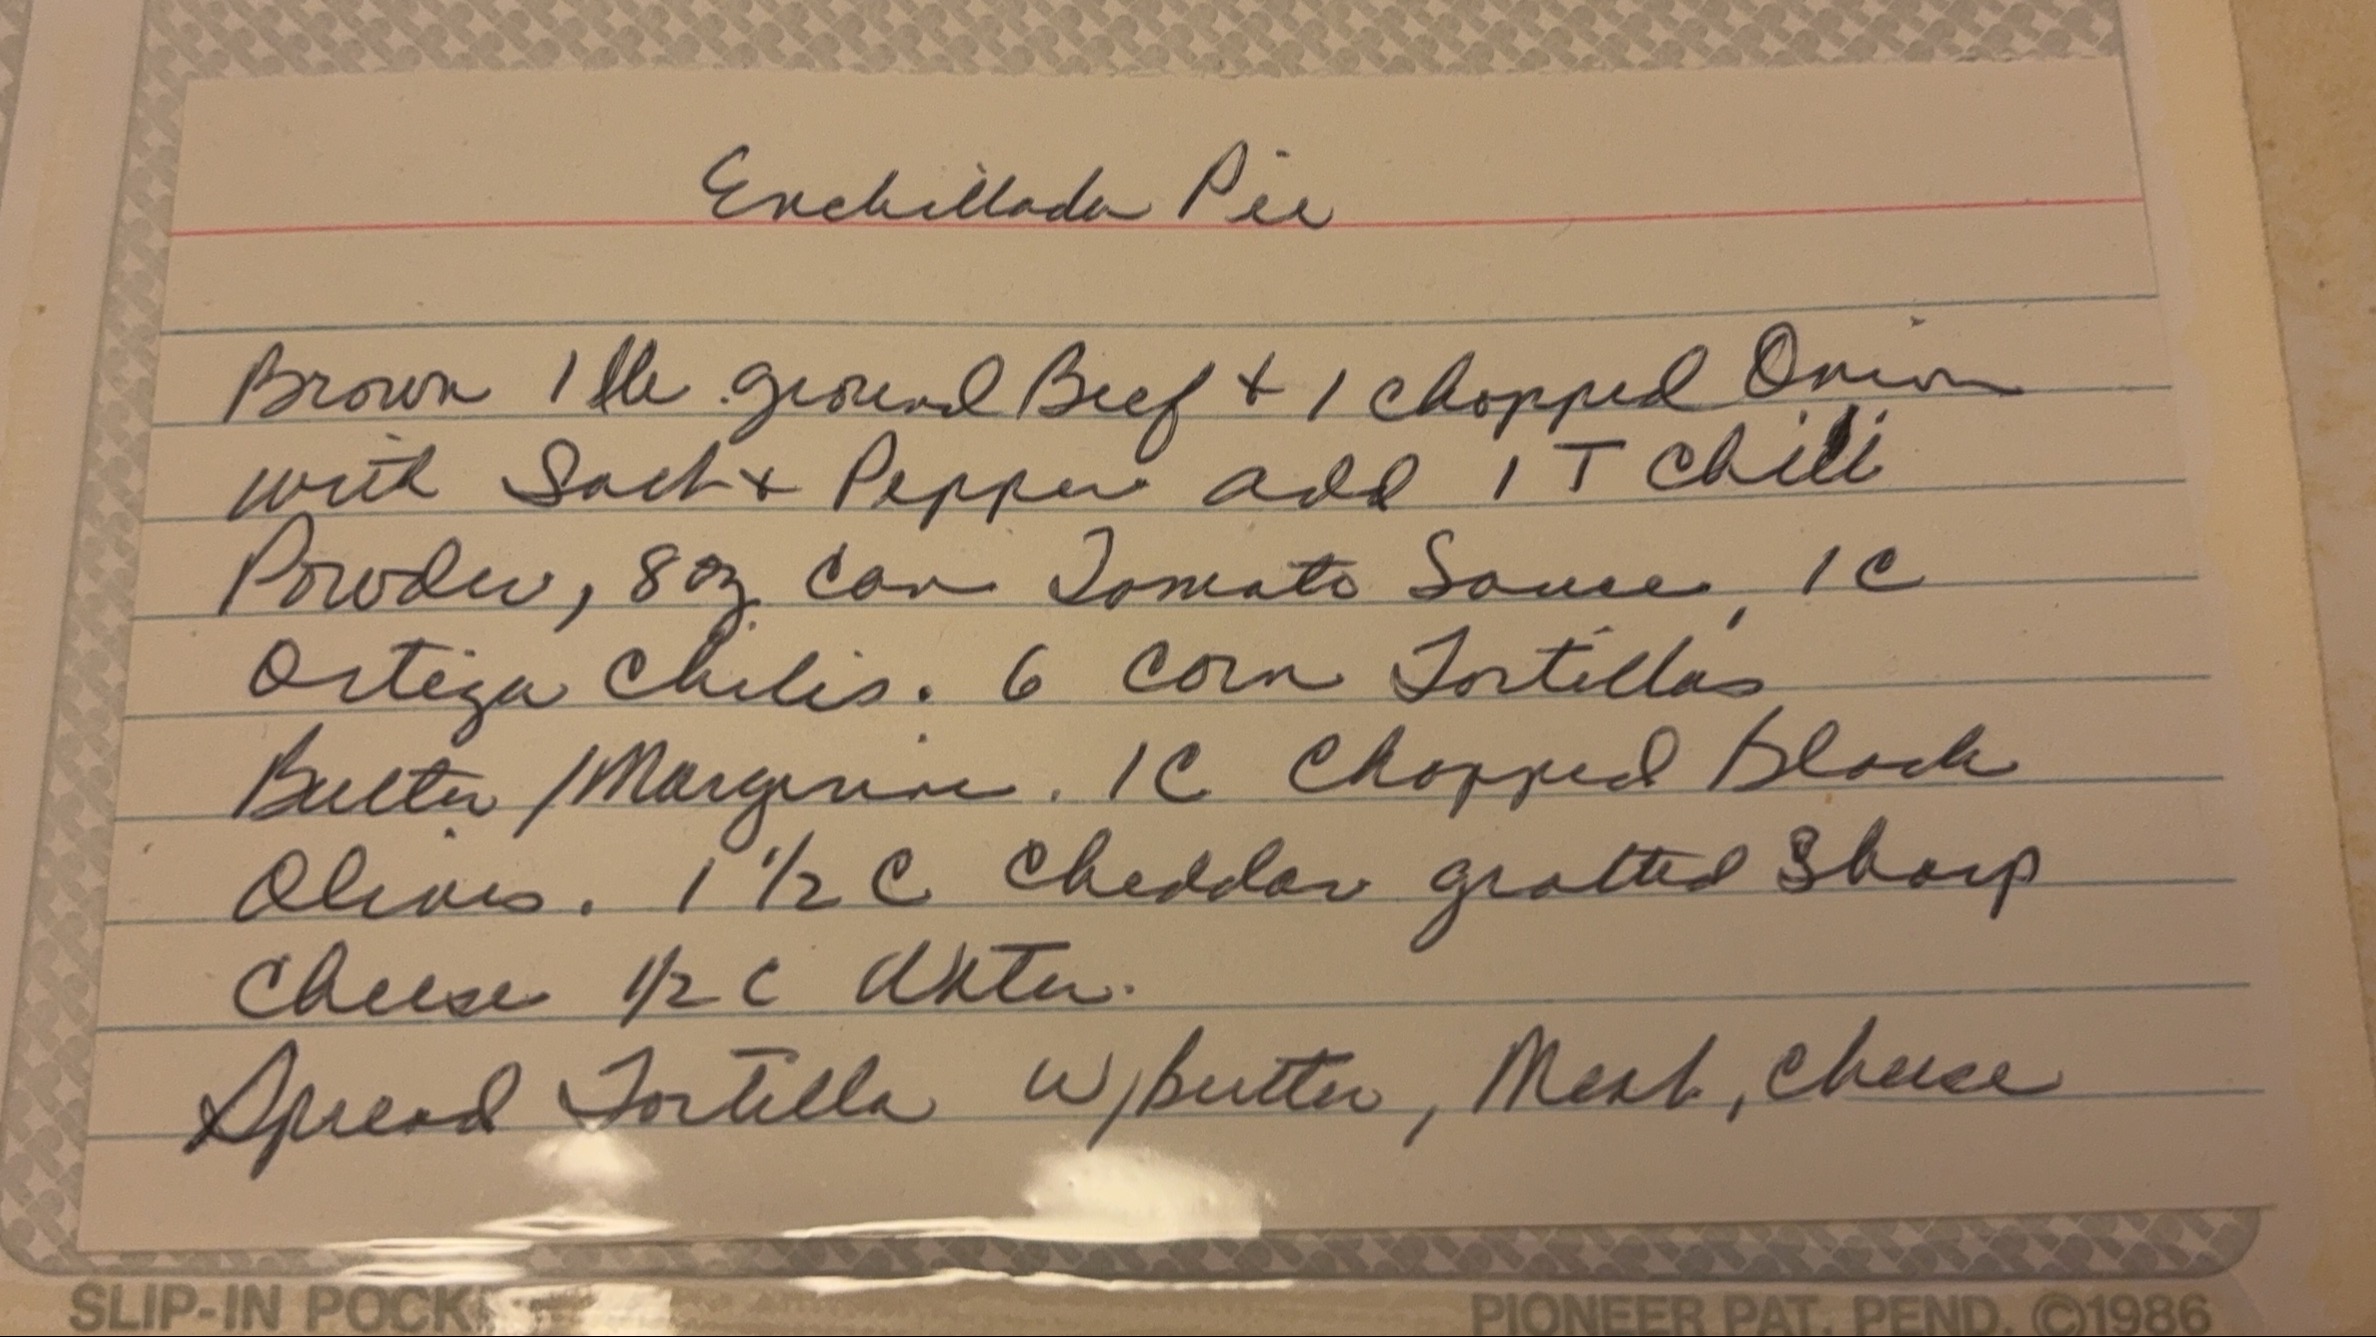 Enchillada Pie
Brown 1 lb ground Beef + 1 chopped Onion
with Salt + Pepper add 1 T Chili
Powder, 8 oz can Tomato Sauce, 1 C
Ortega Chilis. 6 Corn Tortillas
Butter / Margerine. 1C Chopped Black
Olives. 1 1/2 C Cheddar gratted Sharp
Cheese 1/2 C Water.
Spread Tortilla w/ butter, Meat, Cheese
SLIP-IN
PIONEER PAT. PEND. ©1986